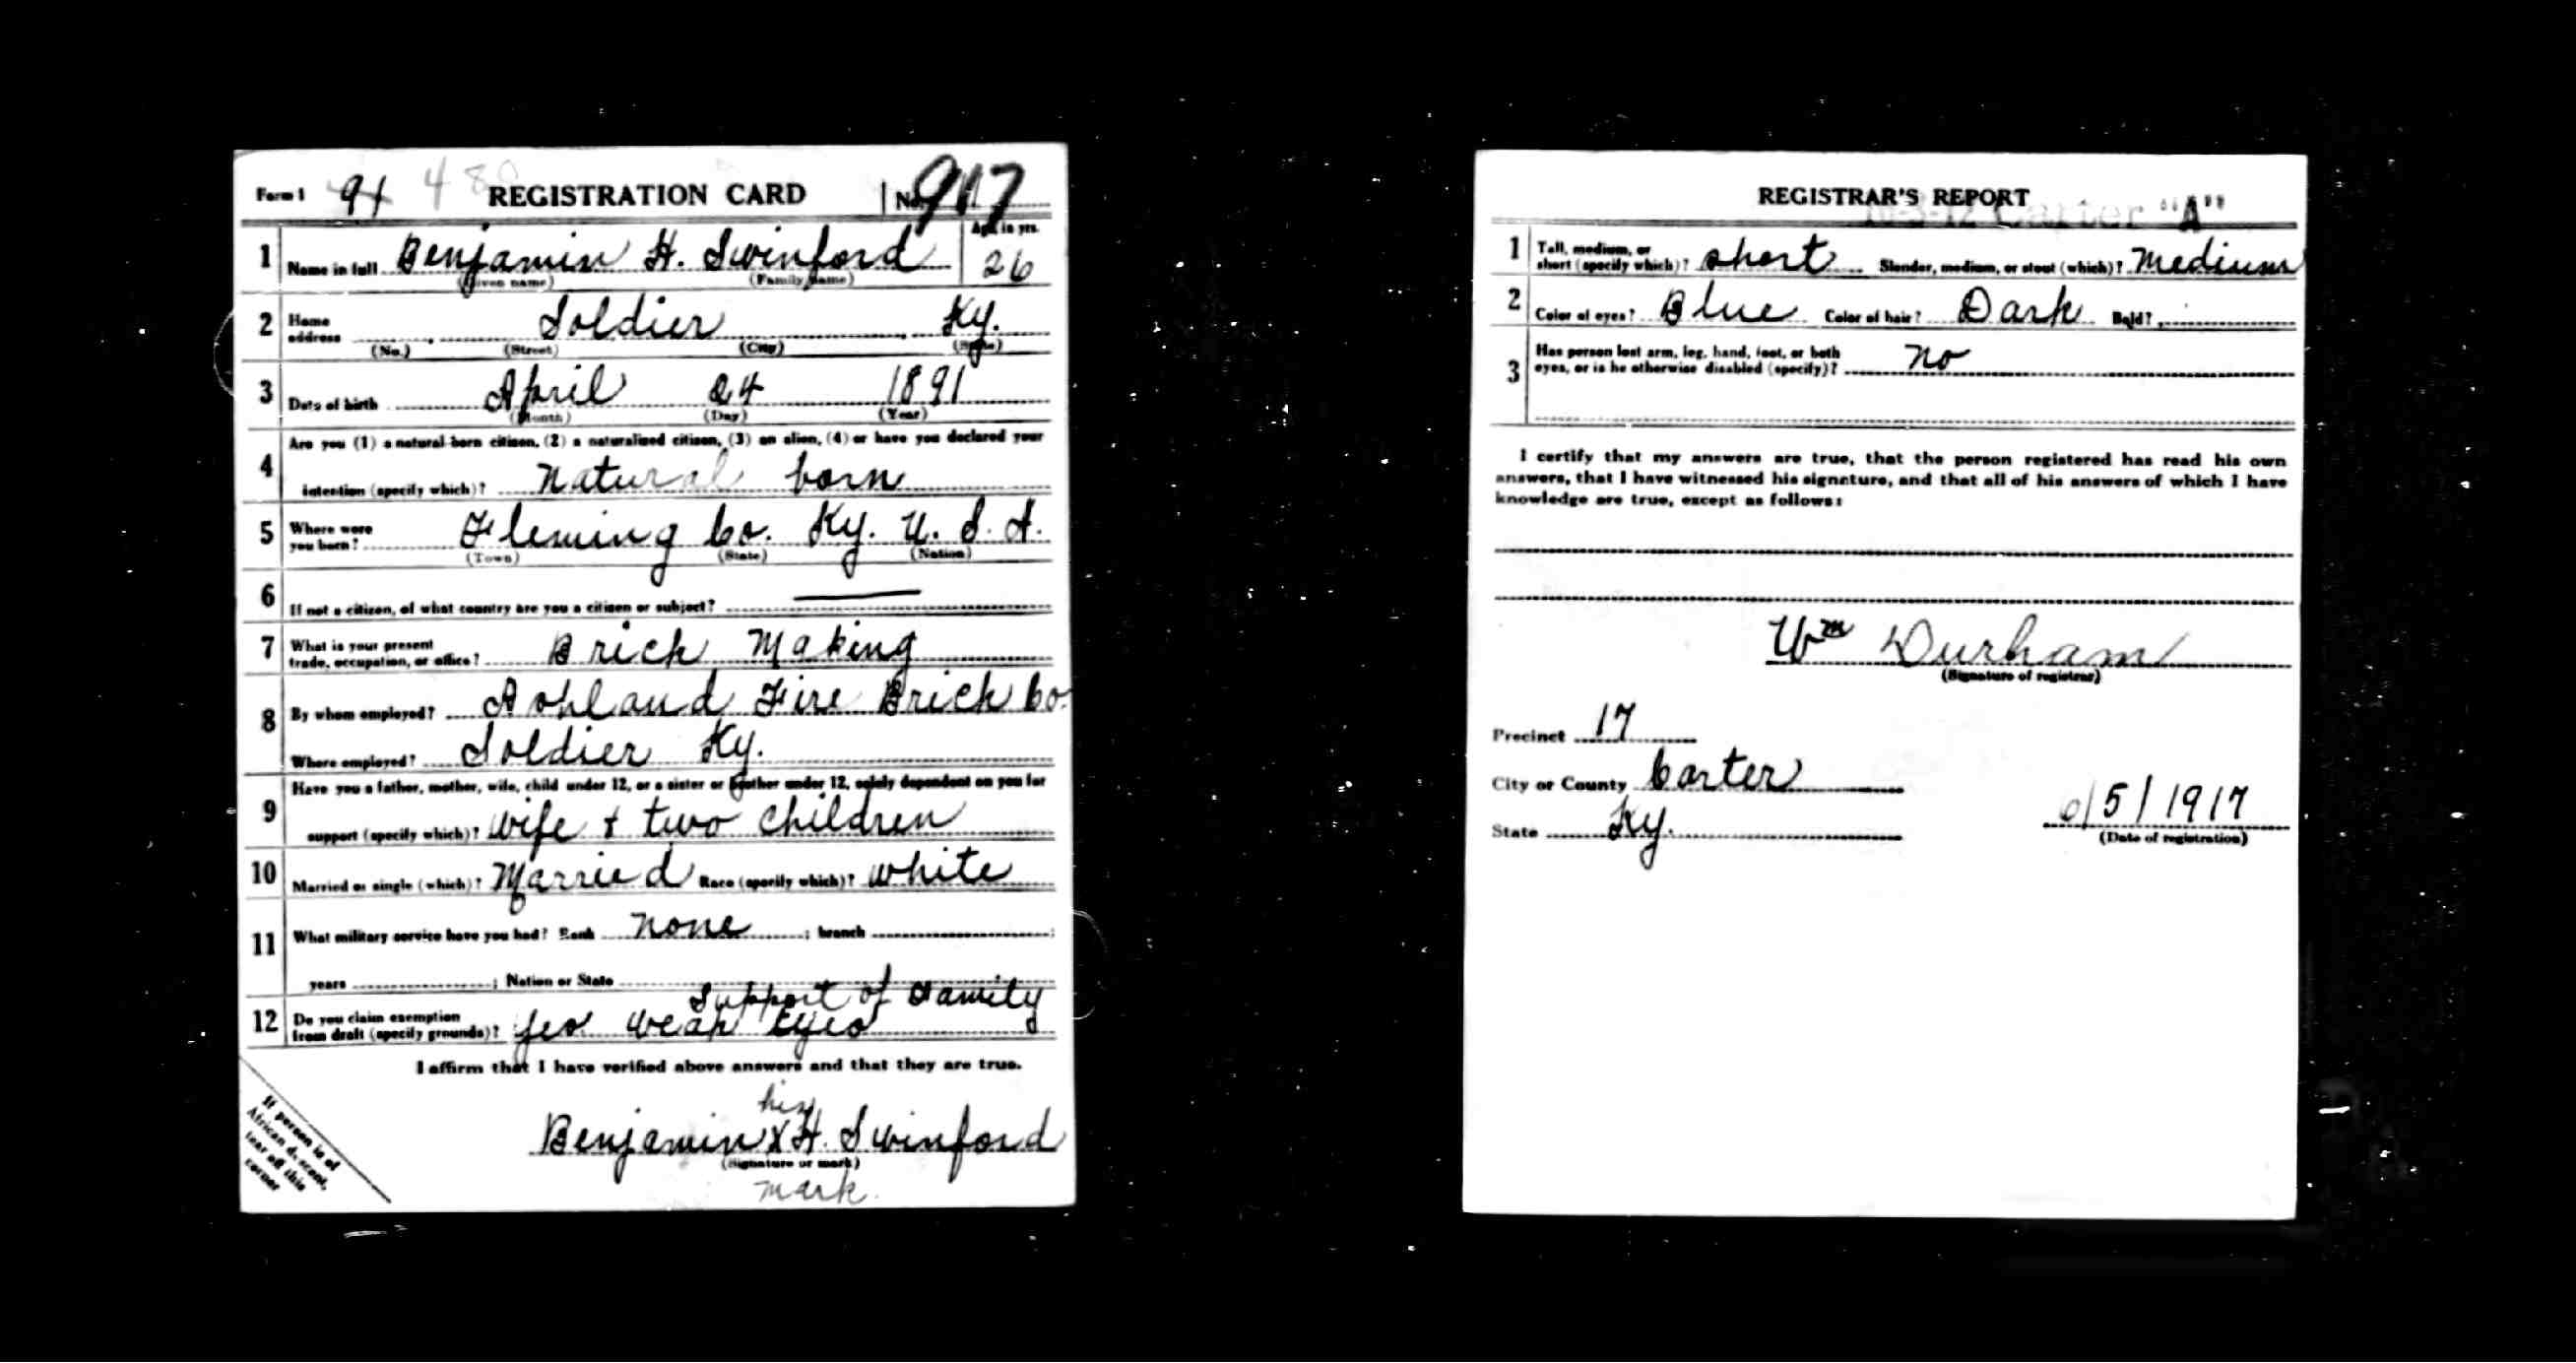 Form 1 91 REGISTRATION CARD No. 917
1 Name in full Benjamin H. Swinford Age in yrs. 26
(Given name) (Family name)
2 Home address Soldier Ky.
(No.) (Street) (City) (State)
3 Date of birth April 24 1891
(Month) (Day) (Year)
4 Are you (1) a natural-born citizen, (2) a naturalized citizen, (3) an alien, (4) or have you declared your
intention (specify which)? Natural born
5 Where were you born? Fleming Co. Ky. U. S. A.
(Town) (State) (Nation)
6 If not a citizen, of what country are you a citizen or subject?
7 What is your present trade, occupation, or office? Brick Making
8 By whom employed? Ashland Fire Brick Co.
Where employed? Soldier Ky.
9 Have you a father, mother, wife, child under 12, or a sister or brother under 12, solely dependent on you for
support (specify which)? Wife + two children
10 Married or single (which)? Married Race (specify which)? White
11 What military service have you had? Rank none ; branch ;
years ; Nation or State
Support of Family
12 Do you claim exemption from draft (specify grounds)? Yes weak Eyes
I affirm that I have verified above answers and that they are true.
his
Benjamin X H. Swinford
(Signature or mark)
mark.
If person is of
African descent,
tear off this
corner
REGISTRAR'S REPORT
Carter "A"
1 Tall, medium, or short (specify which)? short Slender, medium, or stout (which)? Medium
2 Color of eyes? Blue Color of hair? Dark Bald?
3 Has person lost arm, leg, hand, foot, or both
eyes, or is he otherwise disabled (specify)? No
I certify that my answers are true, that the person registered has read his own
answers, that I have witnessed his signature, and that all of his answers of which I have
knowledge are true, except as follows:
Wm Durham
(Signature of registrar)
Precinct 17
City or County Carter
State Ky.
6/5/1917
(Date of registration)